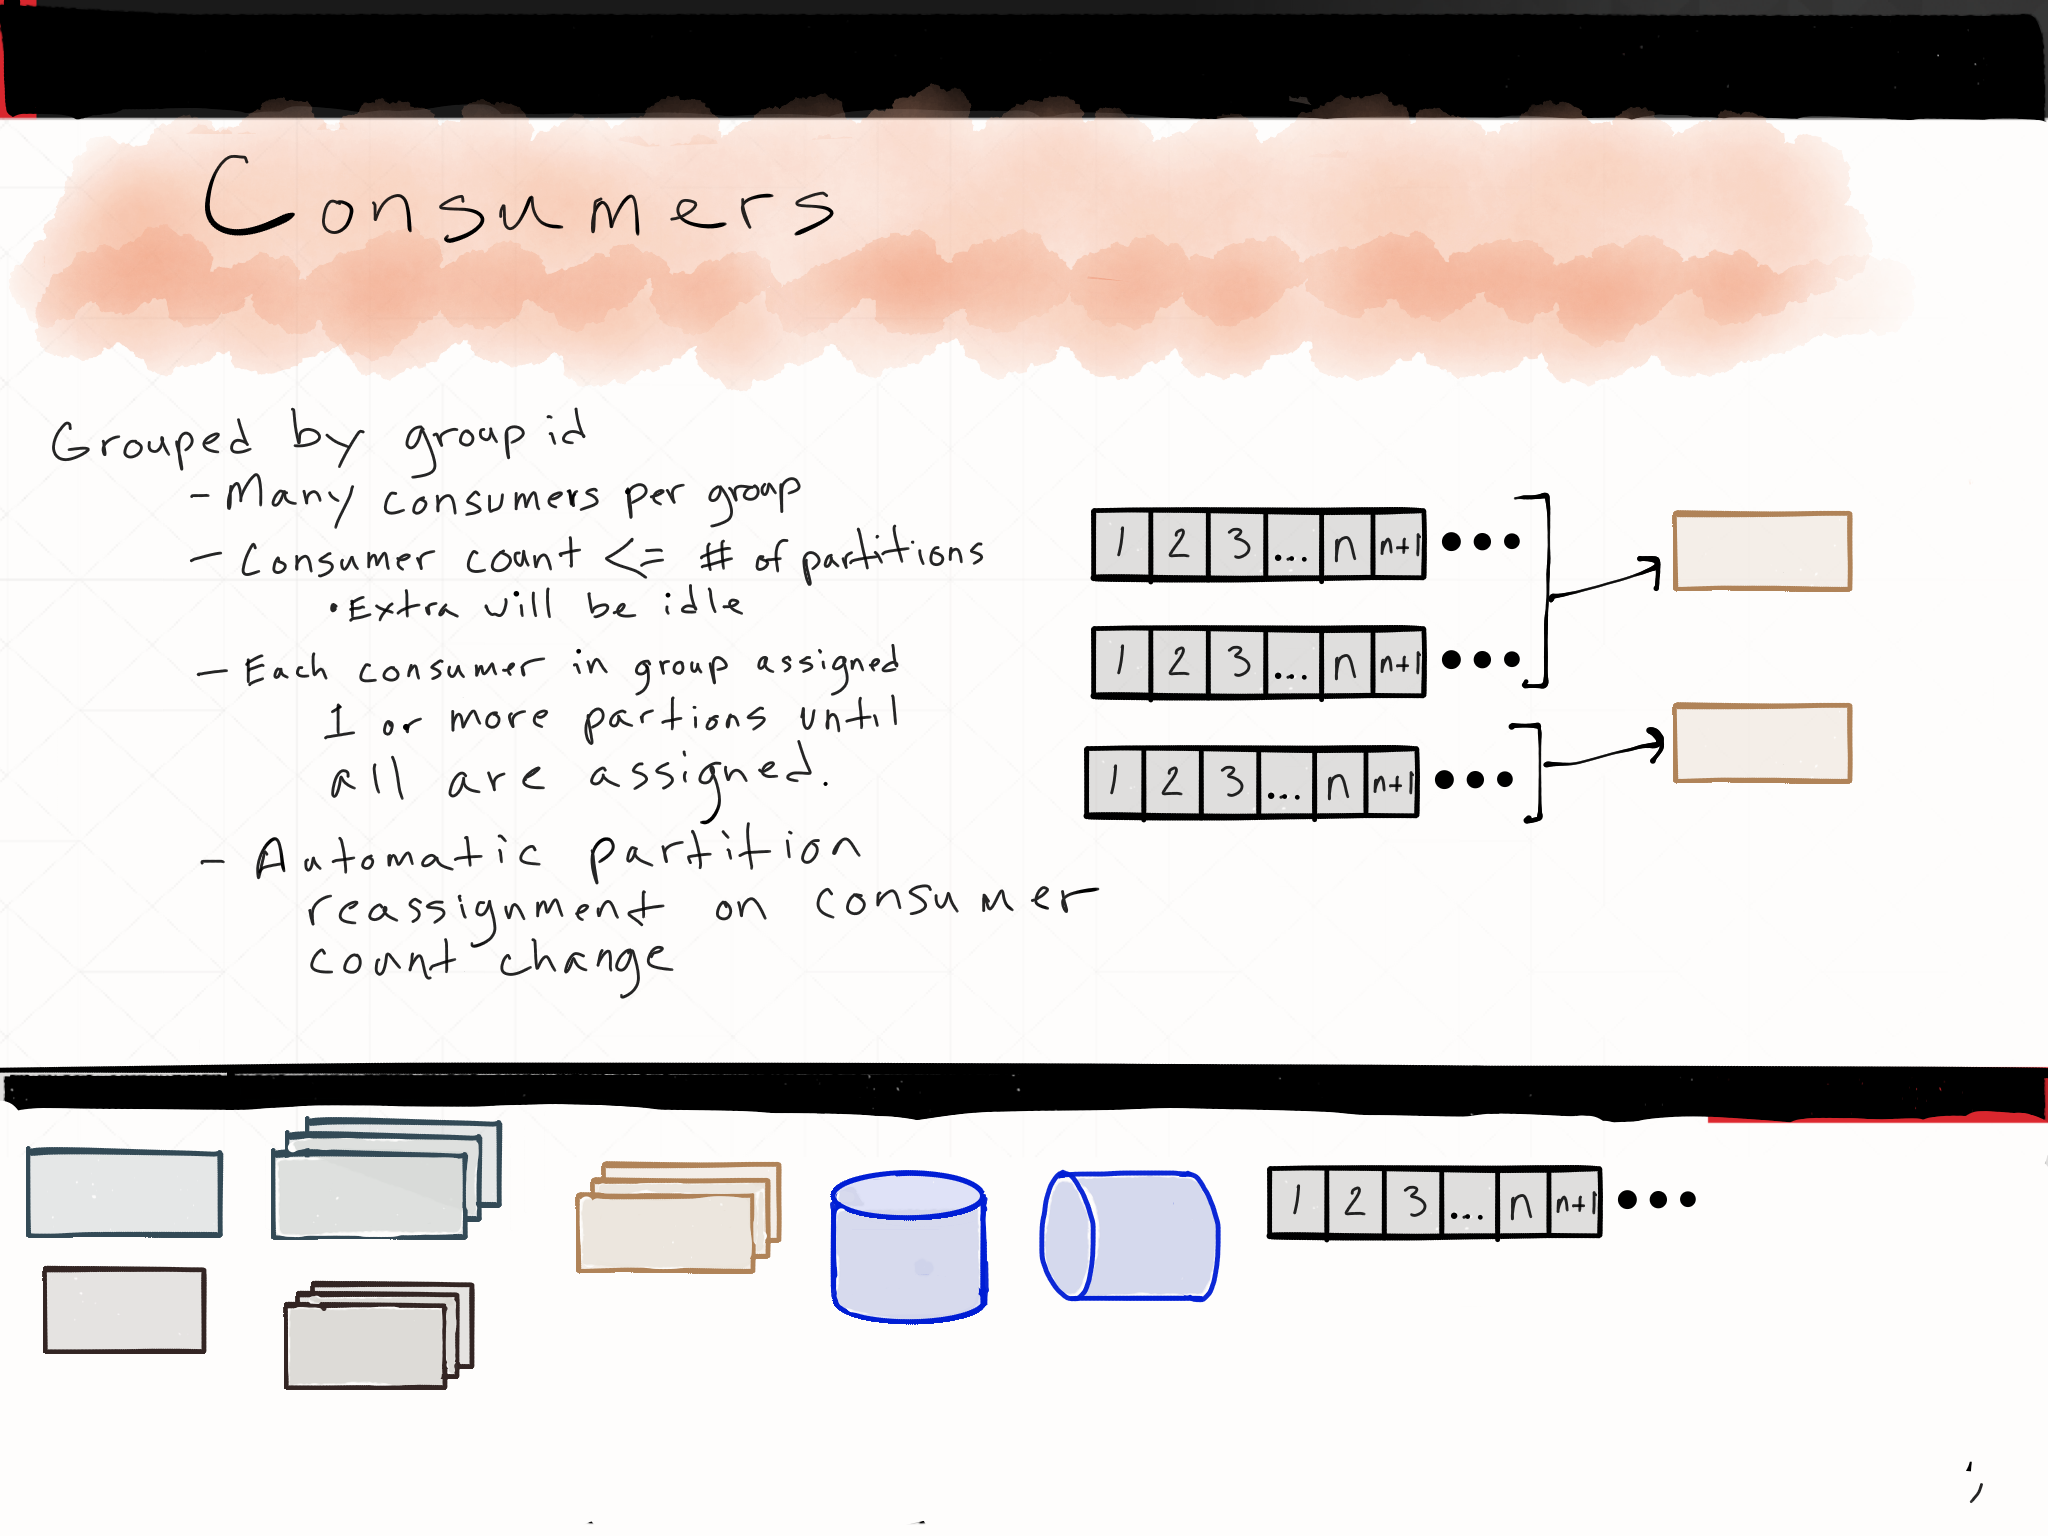 Consumers
Grouped by group id
- Many consumers per group
- Consumer count <= # of partitions
• Extra will be idle
- Each consumer in group assigned
1 or more partions until
all are assigned.
- Automatic partition
reassignment on consumer
count change
1 2 3 ... n n+1 •••
1 2 3 ... n n+1 •••
1 2 3 ... n n+1 •••
1 2 3 ... n n+1 •••